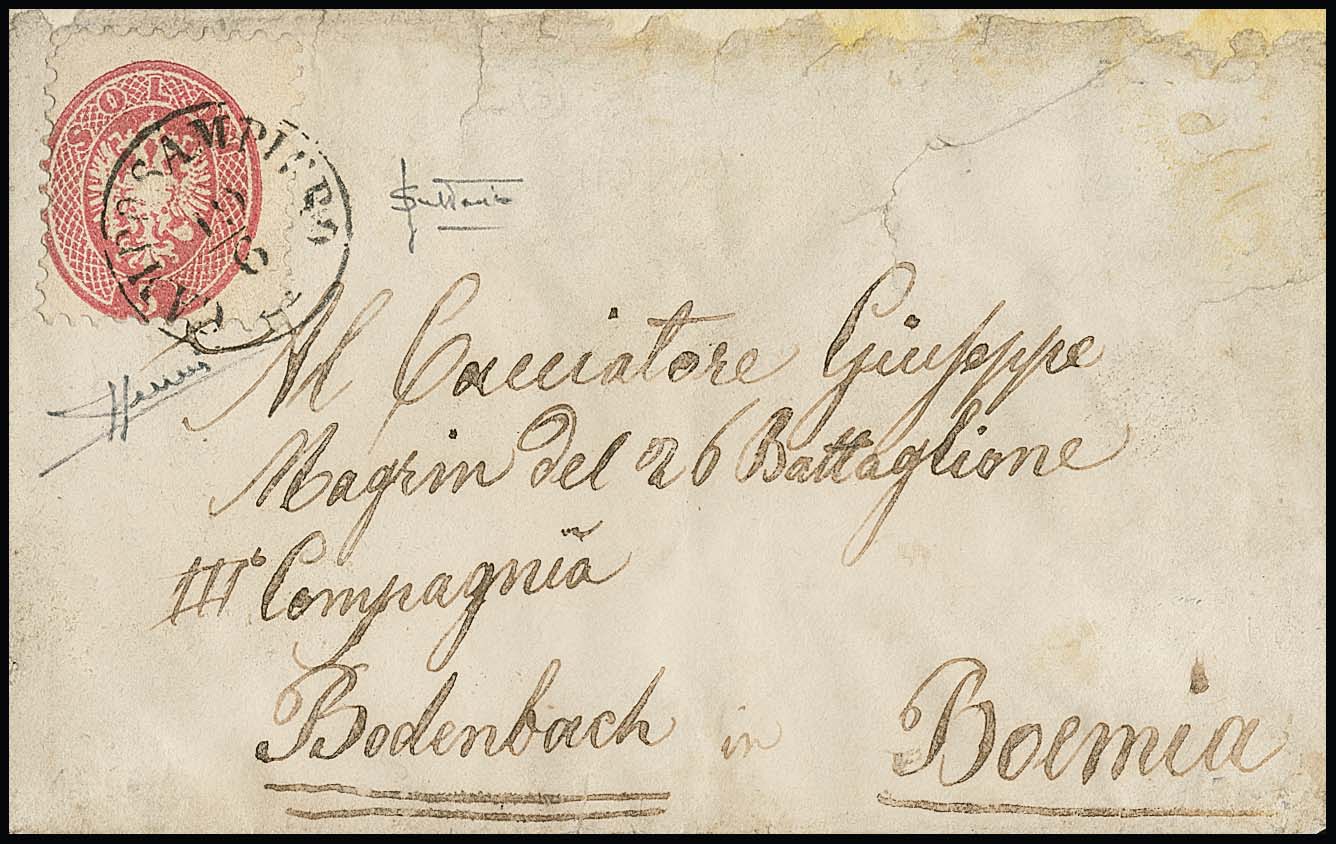 SOL
CAMPO SAMPIERO
19
6
Al Cacciatore Giuseppe
Magrin del 26 Battaglione
IIIº Compagnia
Bodenbach in Boemia